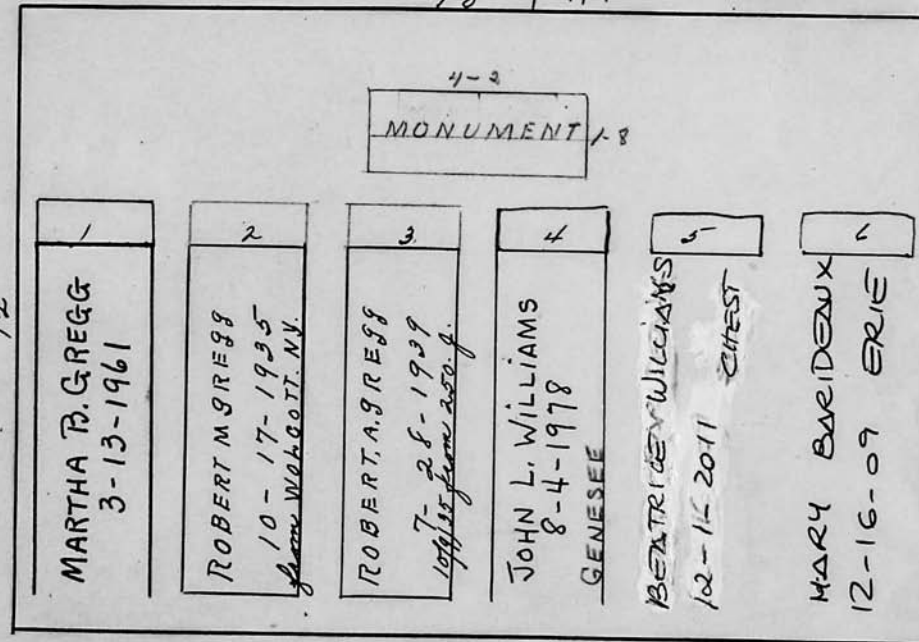 4-2
MONUMENT 1-8
1
MARTHA B. GREGG
3-13-1961
2
ROBERT M GREGG
10-17-1935
from WOLCOTT. N.Y.
3.
ROBERT. A. GREGG
7-28-1939
from 250-J.
4
JOHN L. WILLIAMS
8-4-1978
GENESEE
5
BEATRICE WILLIAMS
2011
CHEST
6
MARY BARIDEAUX
12-16-09 ERIE